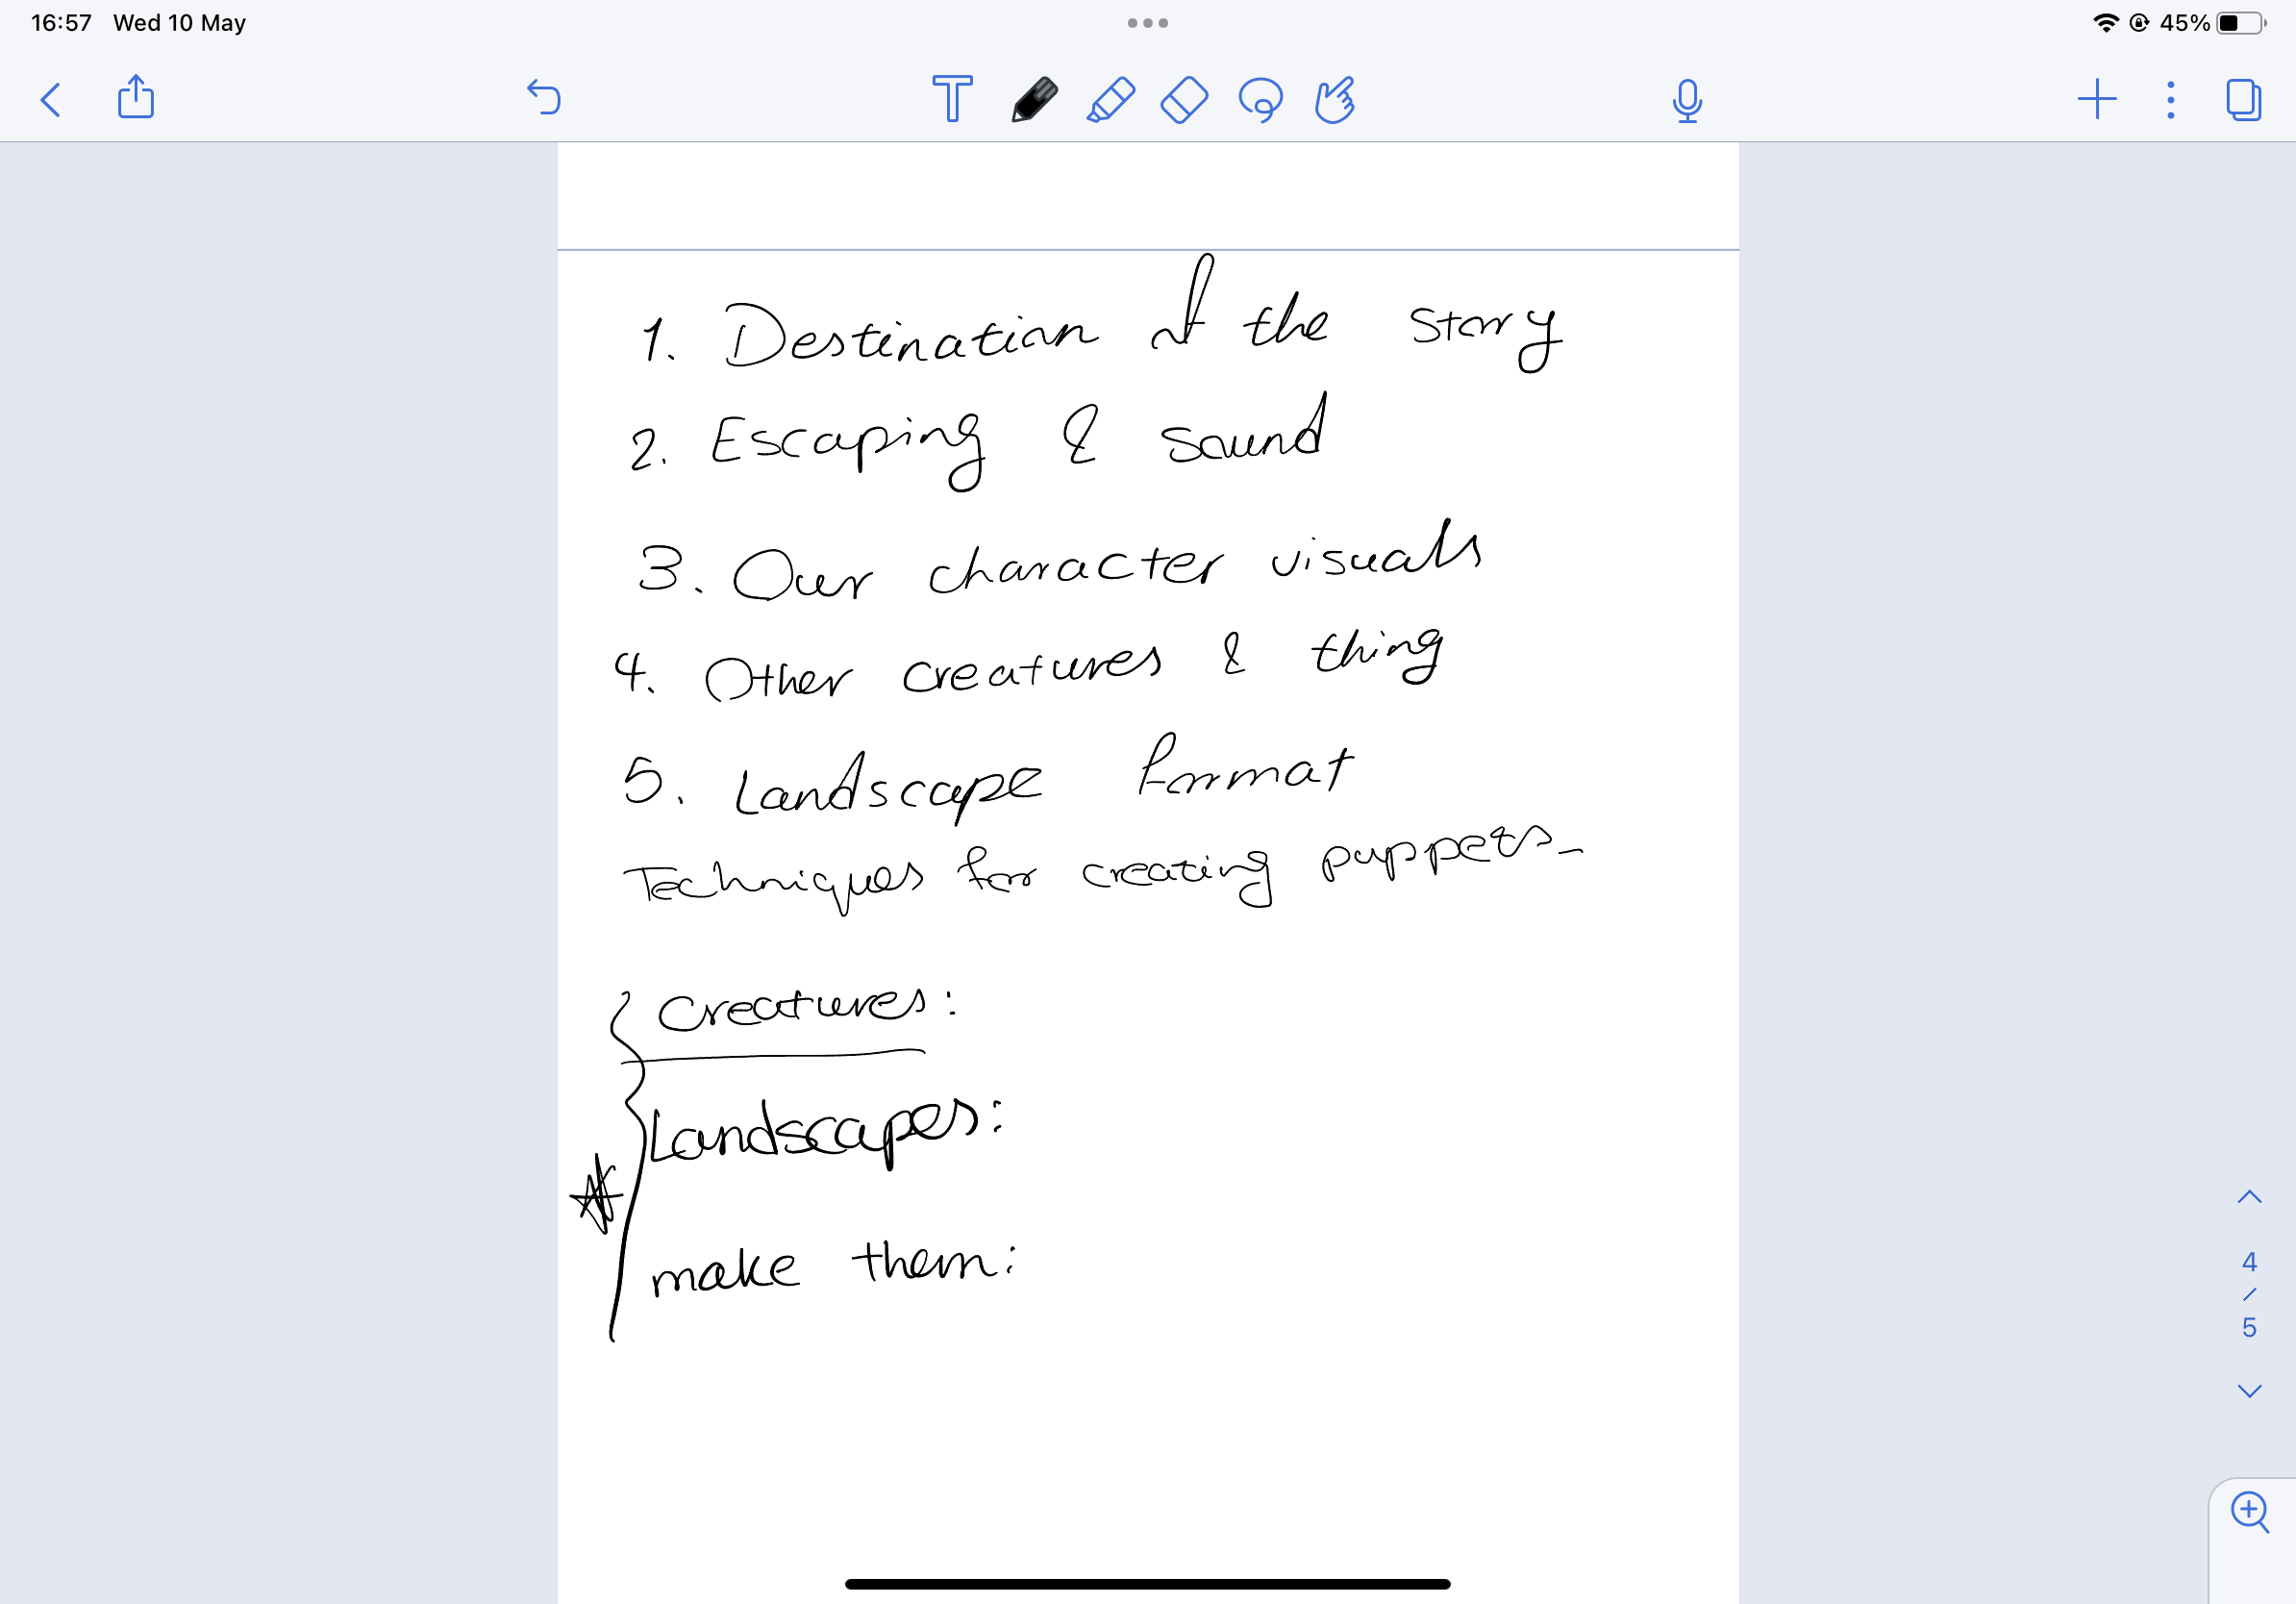 16:57 Wed 10 May
45%
1. Destination of the story
2. Escaping & sound
3. Our character visuals
4. Other creatures & thing
5. Landscape format
Techniques for creating puppets
Creatures:
Landscapes:
make them:
4
/
5